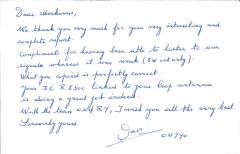 Dear
We thank you very much for your very interesting and
complete report.
Compliments for having been able to listen to our
signals whereas it was weak (5W only).
What you copied is perfectly correct.
Your IC R linked to your loop antenna
is doing a great job indeed.
With the team, I wish you all the very best.
Sincerely yours